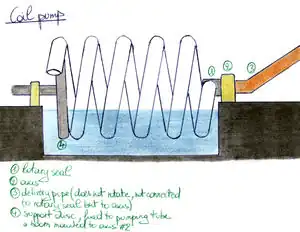 Coil pump
③ ② ③
④
① Rotary seal
② axis
③ delivery pipe (does not rotate, not connected
to rotary seal but to axis)
④ support disc, fixed to pumping tube
& boom mounted to axis #2